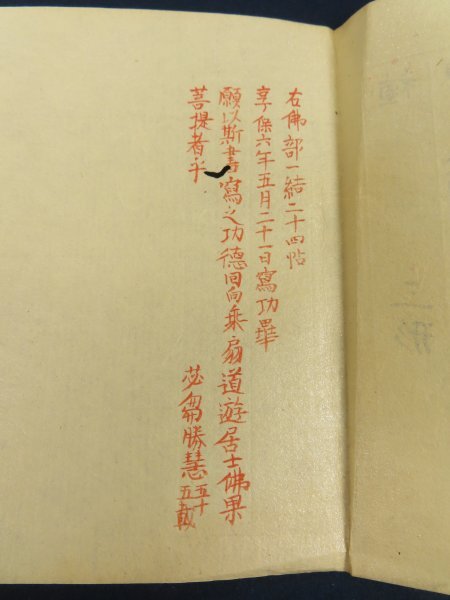 右佛部一結二十四帖
享保六年五月二十一日寫功畢
願以斯書寫之功德回向乘扇道遊居士佛果
菩提者乎
苾芻勝慧五十五載